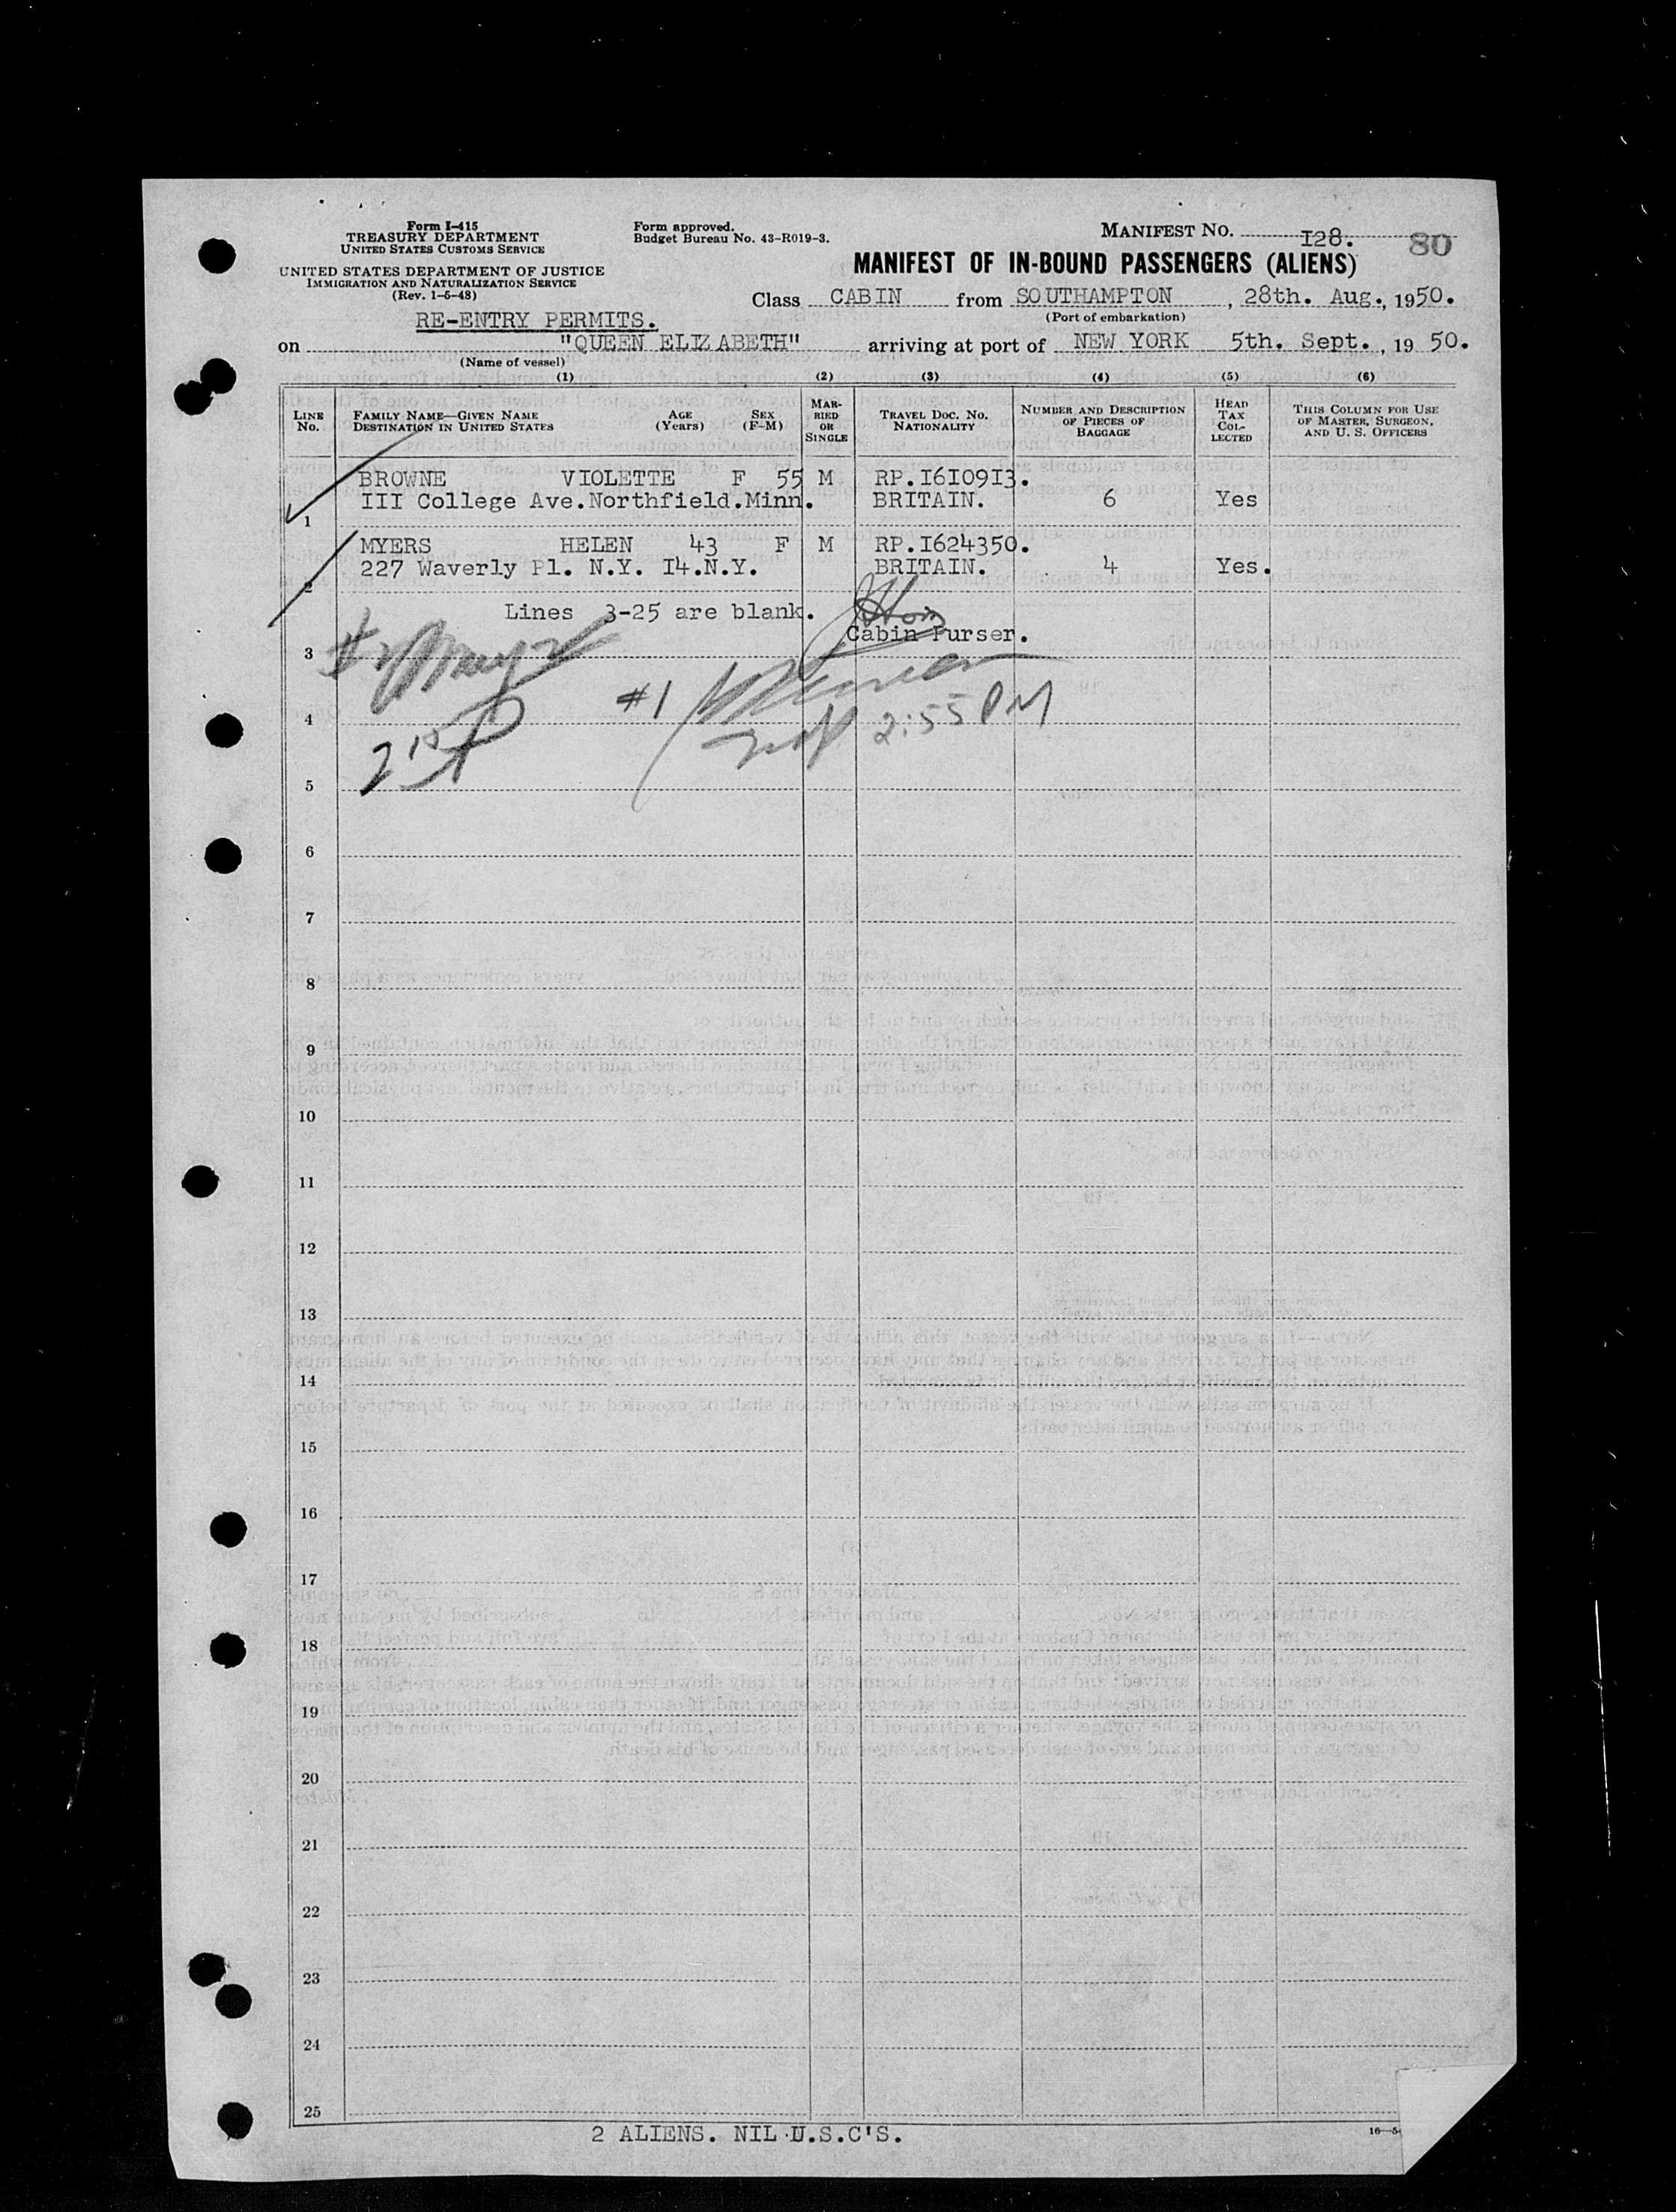 Form I-415
TREASURY DEPARTMENT
UNITED STATES CUSTOMS SERVICE
UNITED STATES DEPARTMENT OF JUSTICE
IMMIGRATION AND NATURALIZATION SERVICE
(Rev. 1-5-48)
Form approved.
Budget Bureau No. 43-R019-3.
MANIFEST NO. I28. 80
MANIFEST OF IN-BOUND PASSENGERS (ALIENS)
Class CABIN from SOUTHAMPTON, 28th. Aug., 1950.
(Port of embarkation)
RE-ENTRY PERMITS.
on "QUEEN ELIZABETH" arriving at port of NEW YORK 5th. Sept., 19 50.
(Name of vessel)
(1) (2) (3) (4) (5) (6)
LINE NO.
FAMILY NAME—GIVEN NAME
DESTINATION IN UNITED STATES
AGE (Years)
SEX (F-M)
MARRIED OR SINGLE
TRAVEL DOC. NO.
NATIONALITY
NUMBER AND DESCRIPTION OF PIECES OF BAGGAGE
HEAD TAX COLLECTED
THIS COLUMN FOR USE OF MASTER, SURGEON, AND U. S. OFFICERS
BROWNE VIOLETTE F 55 M RP.I6I09I3.
1 III College Ave.Northfield.Minn. BRITAIN. 6 Yes
MYERS HELEN 43 F M RP.I624350.
2 227 Waverly Pl. N.Y. I4.N.Y. BRITAIN. 4 Yes.
Lines 3-25 are blank.
Cabin Purser.
3
#1
4
2:55 PM
5
6
7
8
9
10
11
12
13
14
15
16
17
18
19
20
21
22
23
24
25
2 ALIENS. NIL U.S.C'S.